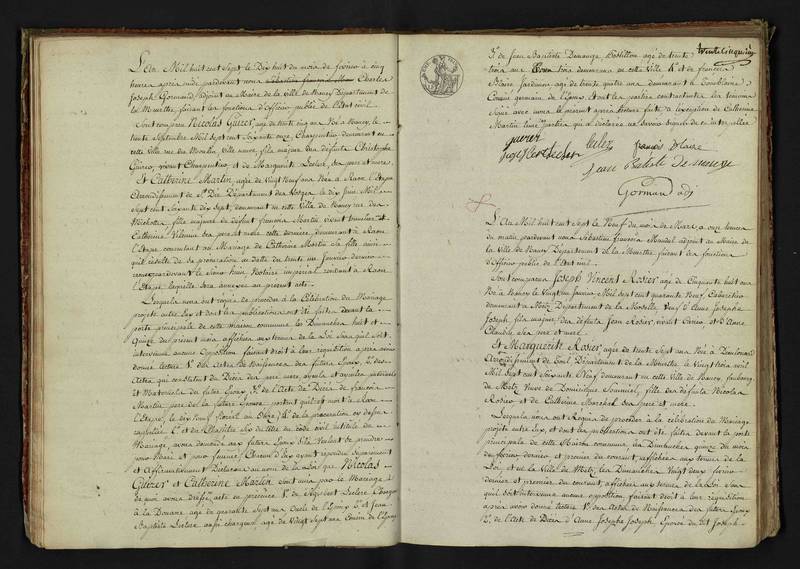 L'An Mil huit cent Sept le Dix huit du mois de février à cinq
heures après midi pardevant nous Charles
Joseph Gormand, adjoint au Maire de la Ville de Nancy Département de
la Meurthe, faisant les fonctions d'Officier public de l'Etat civil
Sont comparus Nicolas Guerer, agé de trente cinq ans Né à Nancy, le
trente Septembre Mil Sept cent Soixante onze, Charpentier demeurant en
cette Ville rue du Moulin, Ville neuve, fils majeur des défunts Christophe
Guerer, vivant Charpentier et de Marguerite Leclerc, ses père et mère,
Et Catherine Martin, agée de Vingt Neuf ans Née à Raon l'Etape
Arrondissement de St Dié Département des Vosges le dix Juin Mil
Sept cent Soixante dix Sept, demeurant en cette Ville de Nancy rue des
fille majeure de défunt françois Martin vivant et
Catherine ses père et mère cette dernière, demeurant à Raon
l'Etape consentant au Mariage de Catherine Martin sa fille ainsi
qu'il résulte de sa procuration en datte du trente un Janvier dernier
pardevant le Notaire impérial résidant à Raon
l'Etape laquelle sera annexée au présent acte.
Lesquels nous ont requis de procéder à la Célébration du Mariage
projeté entre eux et dont les publications ont été faites devant la
porte principale de cette maison commune les Dimanches huit et
Quinze du présent mois affichées aux termes de la Loi sans qu'il soit
intervenu aucune Opposition faisant droit à leur requisition après avoir
donné lecture 1° des Actes de Naissances des futurs Epoux, 2° des
Actes qui constatent le Décès des père mère ayeuls et ayeules paternels
et Maternels du futur Epoux, 3° de l'Acte de Décès de françois
Martin père de la future Epouse portant qu'il est mort à Raon
l'Etape, le dix Neuf floréal an Onze, 4° de la procuration cy dessus
5° et du Chapitre Six du titre du code civil intitulé du
Mariage, avons demandé aux futurs Epoux s'ils veulent se prendre
pour Mari et pour femme, Chacun d'eux ayant répondu Séparément
et Affirmativement Déclarons au nom de la Loi que Nicolas
Guerer et Catherine Martin sont unis par le Mariage
De quoi avons dressé acte en présence 1° de Leclerc Chargeur
à la Douane agé de quarante Sept ans Oncle de l'Epoux 2° et Jean
Baptiste Leclerc aussi chargeur, agé de Vingt Sept ans Cousin de l'Epoux
trente cinquième
3° de Jean Baptiste Demenge, agé de trente
trois ans demeurans en cette Ville 4° et de françois
Dolaire Jardinier agé de trente quatre ans demeurant à Tomblaine
Cousin germain de l'Epoux, Et ont les parties contractantes les témoins
Signé avec nous le présent après lecture faite à l'exception de Catherine
Martin l'une des parties qui a déclaré ne savoir signer de ce interpellée
guerer
françois dolaire
Jean Batiste Demenge
Gormand adj
L'An Mil huit cent Sept le Neuf du mois de Mars à onze heures
du matin pardevant nous Sébastien françois Mandel adjoint au Maire de
la Ville de Nancy Département de la Meurthe faisant les fonctions
d'Officier public de l'Etat civil
Sont comparus Joseph Vincent Rosier agé de Cinquante huit ans
Né à Nancy le Vingt un Janvier Mil Sept cent quarante Neuf,
demeurant à Metz, Département de la Moselle, Veuf d'Anne Josephe
Joseph, fils majeur des défunts Jean Rosier, et d'Anne
Claudel ses père et mère
Et Marguerite Rosier agée de trente Sept ans Née à Dieulouard
Arrondissement de Toul, Département de la Meurthe, le Vingt trois avril
Mil Sept cent Soixante Neuf demeurant en cette Ville de Nancy, faubourg
de Metz, Veuve de Dominique fille des défunts Nicolas
Rosier et de Catherine Marchal ses père et mère
Lesquels nous ont Requis de procéder à la célébration du Mariage
projeté entre eux, et dont les publications ont été faites devant la porte
principale de cette Maison commune, les Dimanches quinze du mois
de février dernier et premier du courant affichées aux termes de la
Loi, et en la Ville de Metz les Dimanches Vingt deux février
dernier et premier du courant, affichées aux termes de la Loi sans
qu'il soit intervenu aucune opposition, faisant droit à leur réquisition
après avoir donné lecture 1° des Actes de Naissances des futurs Epoux
2° de l'Acte de Décès d'Anne Josephe Joseph, Epouse du dit Joseph